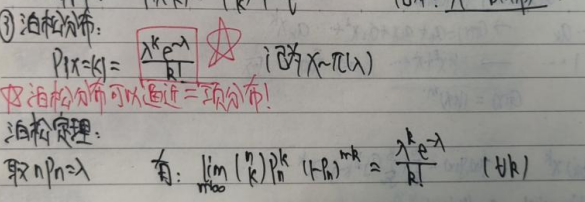 ③泊松分布:
P{X=k}= λ^k e^{-λ} / k! ☆ 记为X~π(λ)
泊松分布可以逼近二项分布!
泊松定理:
取nPn=λ 有: lim_{n→∞} (n k) Pn^k (1-Pn)^{n-k} = λ^k e^{-λ} / k! (∀k)